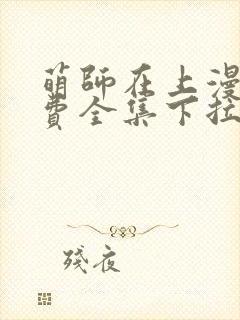 萌師在上漫
費全集下拉
殘夜